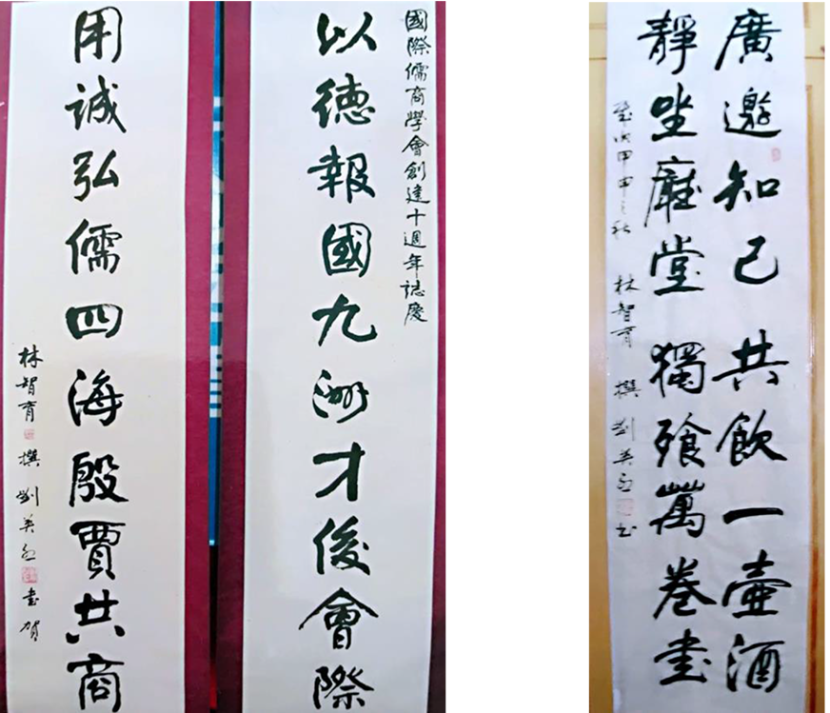 國際儒商學會創建十週年誌慶
以德報國九洲才俊會際
用誠弘儒四海殷賈共商
林智育 撰 劉英 書賀
廣邀知己共飲一壺酒
靜坐廳堂獨飱萬卷書
歲次甲申之秋 林智育 撰 劉英 書